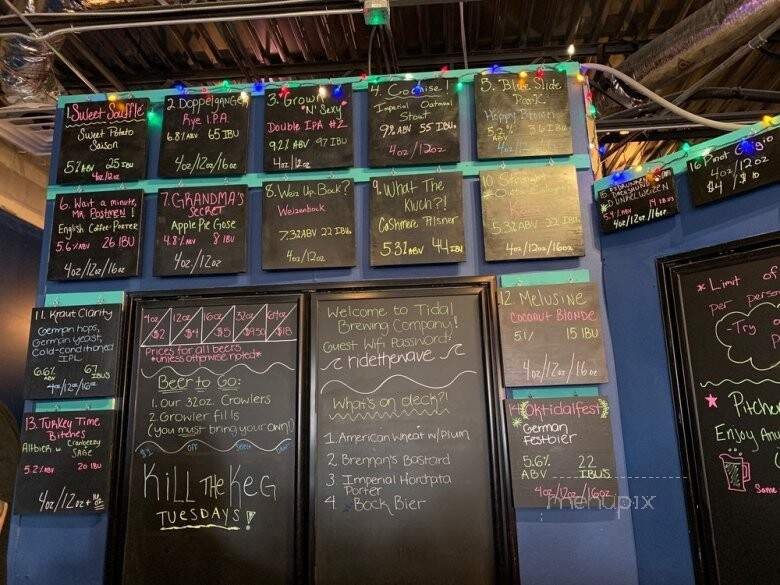 1. Sweet Souffle
Sweet Potato
Saison
5% ABV 25 IBU
4oz/12oz
2. Doppelganger
Rye I.P.A.
6.8% ABV 65 IBU
4oz/12oz/16oz
3. Grown
'N' Sexy
Double IPA #2
9.2% ABV 97 IBU
4oz/12oz
4. Cochise!
Imperial Oatmeal
Stout
9% ABV 55 IBUs
4oz/12oz
5. Blue Slide
Park
Hoppy Brown
5.2% ABV 36 IBU
4oz/12oz
6. Wait a minute,
Mr. Postmen!
English Coffee Porter
5.6% ABV 26 IBU
4oz/12oz/16oz
7. GRANDMA'S
SECRET
Apple Pie Gose
4.8% ABV 8 IBU
4oz/12oz/16oz
8. Weiz Up, Bock?
Weizenbock
7.3% ABV 22 IBU
4oz/12oz
9. What The
Kluch?!
Cashmere Pilsner
5.3% ABV 44 IBU
10.
5.3% ABV 32 IBU
4oz/12oz/16oz
15.
DUNKELWEIZEN
5.4% ABV 14 IBU
4oz/12oz/16oz
16. Pinot Grigio
4oz/12oz
$4 / $18
11. Kraut Clarity
German hops,
German yeast,
Cold-conditioned
IPL
6.6% ABV 67 IBUs
4oz/12oz/16oz
13. Turkey Time
Bitches
Altbier w. Cranberry
SAGE
5.2% ABV 20 IBU
4oz/12oz +
4oz 12oz 16oz 32oz Growler
$2 $4 $5 $9.50 $18
Prices for all beers
*unless otherwise noted*
Beer to Go:
1. Our 32oz. Crowlers
2. Growler fills
(you must bring your own!)
$1 OFF Select
KiLL THE KEG
TUESDAYS!
Welcome to Tidal
Brewing Company!
Guest Wifi Password:
ridethewave
What's on deck?!
1. American wheat w/Plum
2. Brennan's Bastard
3. Imperial Hordpta
Porter
4. Bock Bier
12. Melusine
Coconut Blonde
5% 15 IBU
4oz/12oz/16oz
14. Oktidalfest
German
Festbier
5.6% ABV 22 IBUs
4oz/12oz/16oz
* Limit of
per person
- Try a
Pitchers
Enjoy Any
Some
menupix